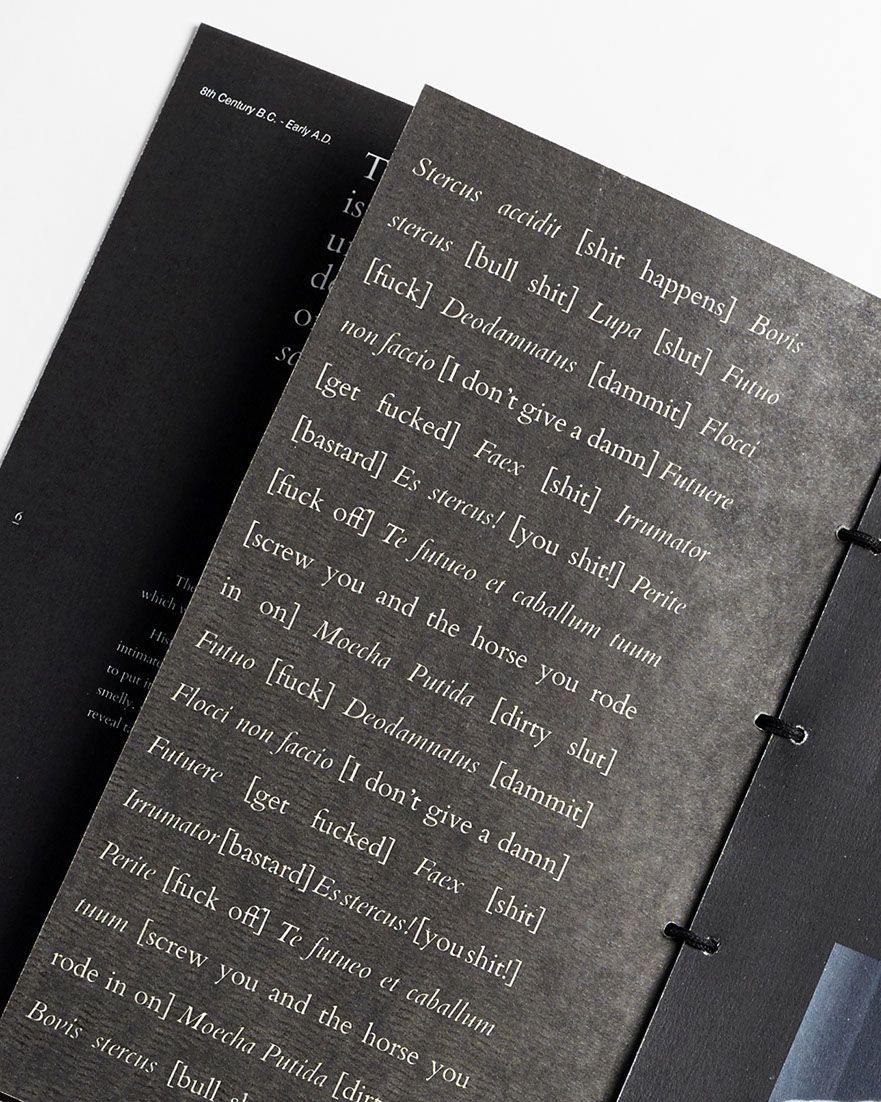 8th Century B.C. - Early A.D.
is
6
which
His
intimate
to put
smelly.
reveal
Stercus accidit [shit happens] Bovis
stercus [bull shit] Lupa [slut] Futuo
[fuck] Deodamnatus [dammit] Flocci
non faccio [I don't give a damn] Futuere
[get fucked] Faex [shit] Irrumator
[bastard] Es stercus! [you shit!] Perite
[fuck off] Te futueo et caballum tuum
[screw you and the horse you rode
in on] Moecha Putida [dirty slut]
Futuo [fuck] Deodamnatus [dammit]
Flocci non faccio [I don't give a damn]
Futuere [get fucked] Faex [shit]
Irrumator [bastard] Es stercus! [you shit!]
Perite [fuck off] Te futueo et caballum
tuum [screw you and the horse you
rode in on] Moecha Putida [dirt
Bovis stercus [bull